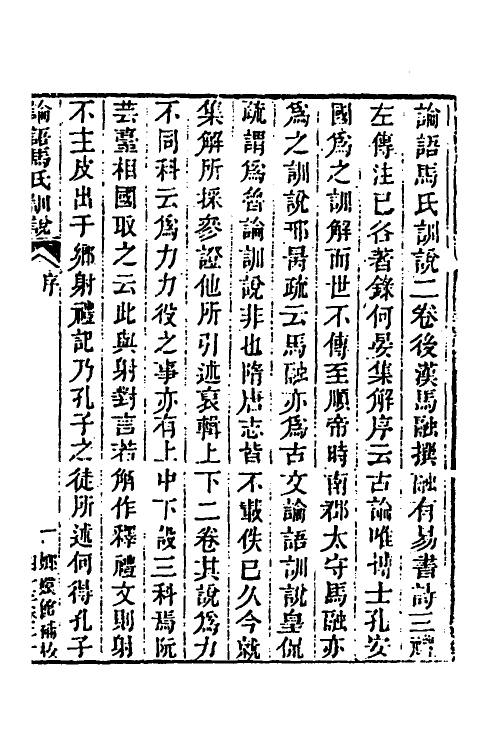 論語馬氏訓說二卷後漢馬融撰融有易書詩三禮
左傳注已各著錄何晏集解序云古論唯博士孔安
國爲之訓解而世不傳至順帝時南郡太守馬融亦
爲之訓說邢昺疏云馬融亦爲古文論語訓說皇侃
疏謂爲魯論訓說非也隋唐志皆不載佚已久今就
集解所採參證他所引述裒輯上下二卷其說爲力
不同科云爲力力役之事亦有上中下設三科焉阮
芸臺相國取之云此與射對言若解作釋禮文則射
不主皮出于鄉射禮記乃孔子之徒所述何得孔子
論語馬氏訓說
序
一
嫏嬛館補校